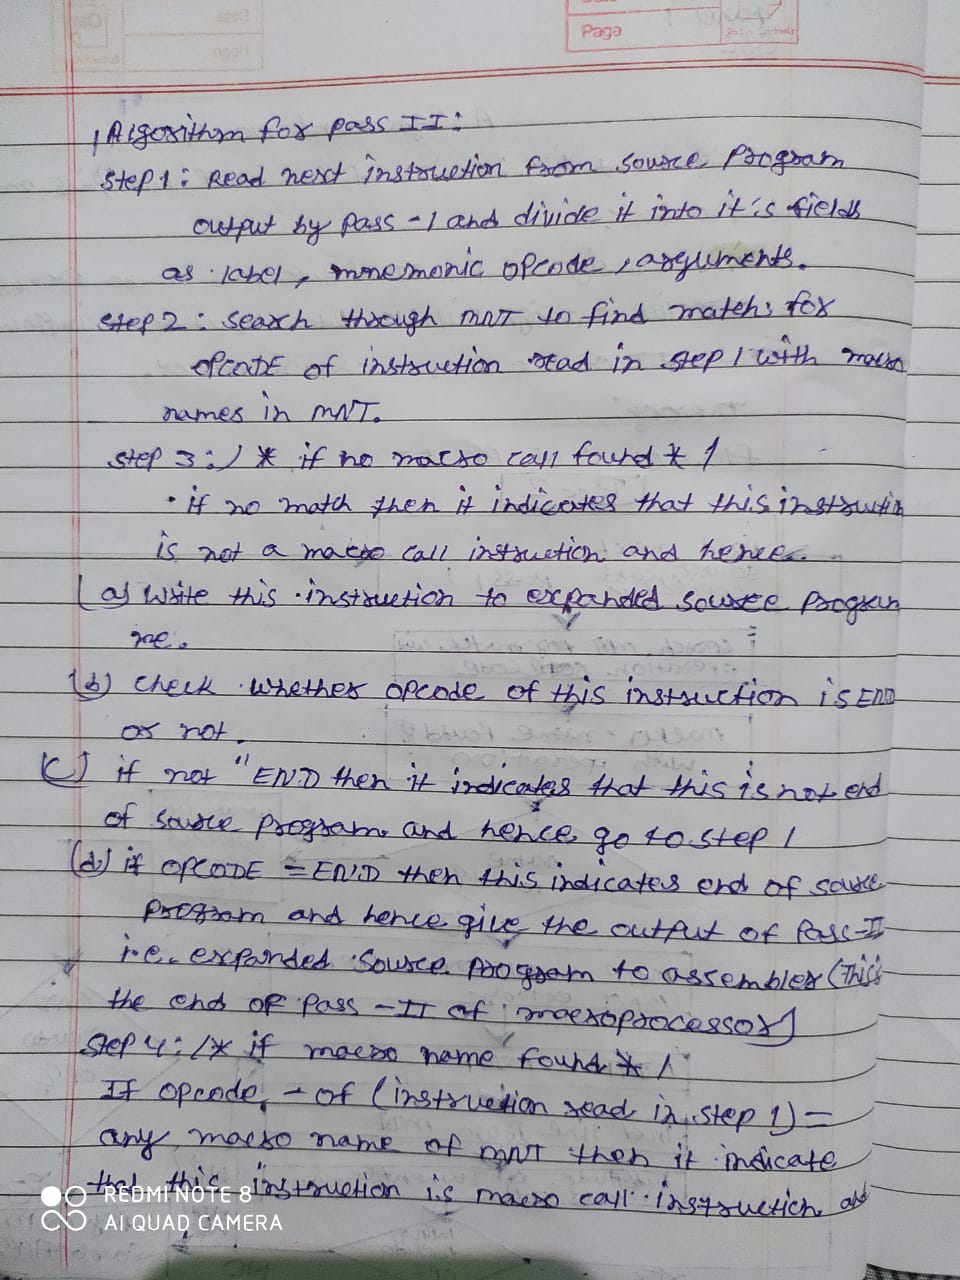 Page
Algorithm for pass II:
Step 1: Read next instruction from source program
output by pass -1 and divide it into it's fields
as label, mnemonic opcode, arguments.
Step 2: search through MNT to find match: for
OPCODE of instruction read in step 1 with macro
names in MNT.
Step 3: /* if no macro call found */
• if no match then it indicates that this instructin
is not a macro call instruction and hence.
(a) write this instruction to expanded source program
me.
(b) check whether opcode of this instruction is END
or not.
(c) if not "END then it indicates that this is not end
of source program and hence go to step 1
(d) if OPCODE = END then this indicates end of source
program and hence give the output of Pass-II
i.e. expanded source program to assembler (This is
the end of Pass -II of macroprocessor)
Step 4: /* if macro name found */
If opcode - of (instruction read in step 1) =
any macro name of MNT then it indicate
that this instruction is macro call instruction and
REDMI NOTE 8
AI QUAD CAMERA